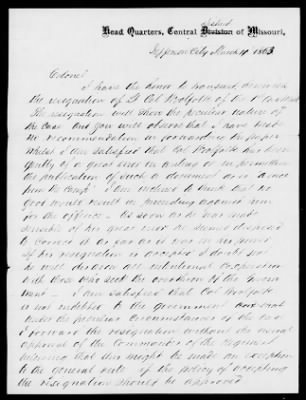 Head Quarters, Central District of Missouri,
Jefferson City March 4 1863
Colonel
I have the honor to transmit herewith
the resignation of Lt Col of the
The resignation will show the peculiar nature of
the case. And you will observe that I have made
no recommendation in forwarding the paper
Whilst I am satisfied that Col has been
guilty of a great error in writing or in permitting
the publication of such a document as is a
from the Camp I am inclined to think that no
good would result in proceeding against him
for the offence. As soon as he was made
sensible of his great error he seemed disposed
to correct it as far as it was in his power
If his resignation is accepted I doubt not
he will all intentional cooperation
with those who seek the overthrow of the Govern
ment — I am satisfied that Col
is not indebted to the government and that
under the peculiar circumstances of the case
I forward the resignation without the usual
approval of the Commander of the Regiment
believing that this might be made an exception
to the general rule & the policy of accepting
the resignation should be approved